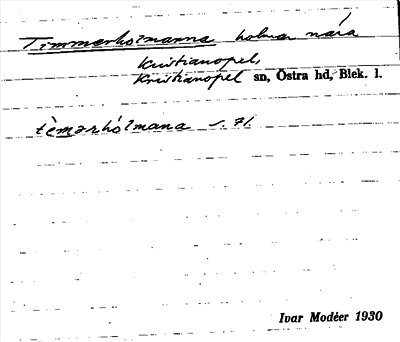 Timmarholmarna holmar nära
Kristianopel,
Kristianopel sn, Östra hd, Blek. l.
tèmarhólmana s. 71.
Ivar Modéer 1930